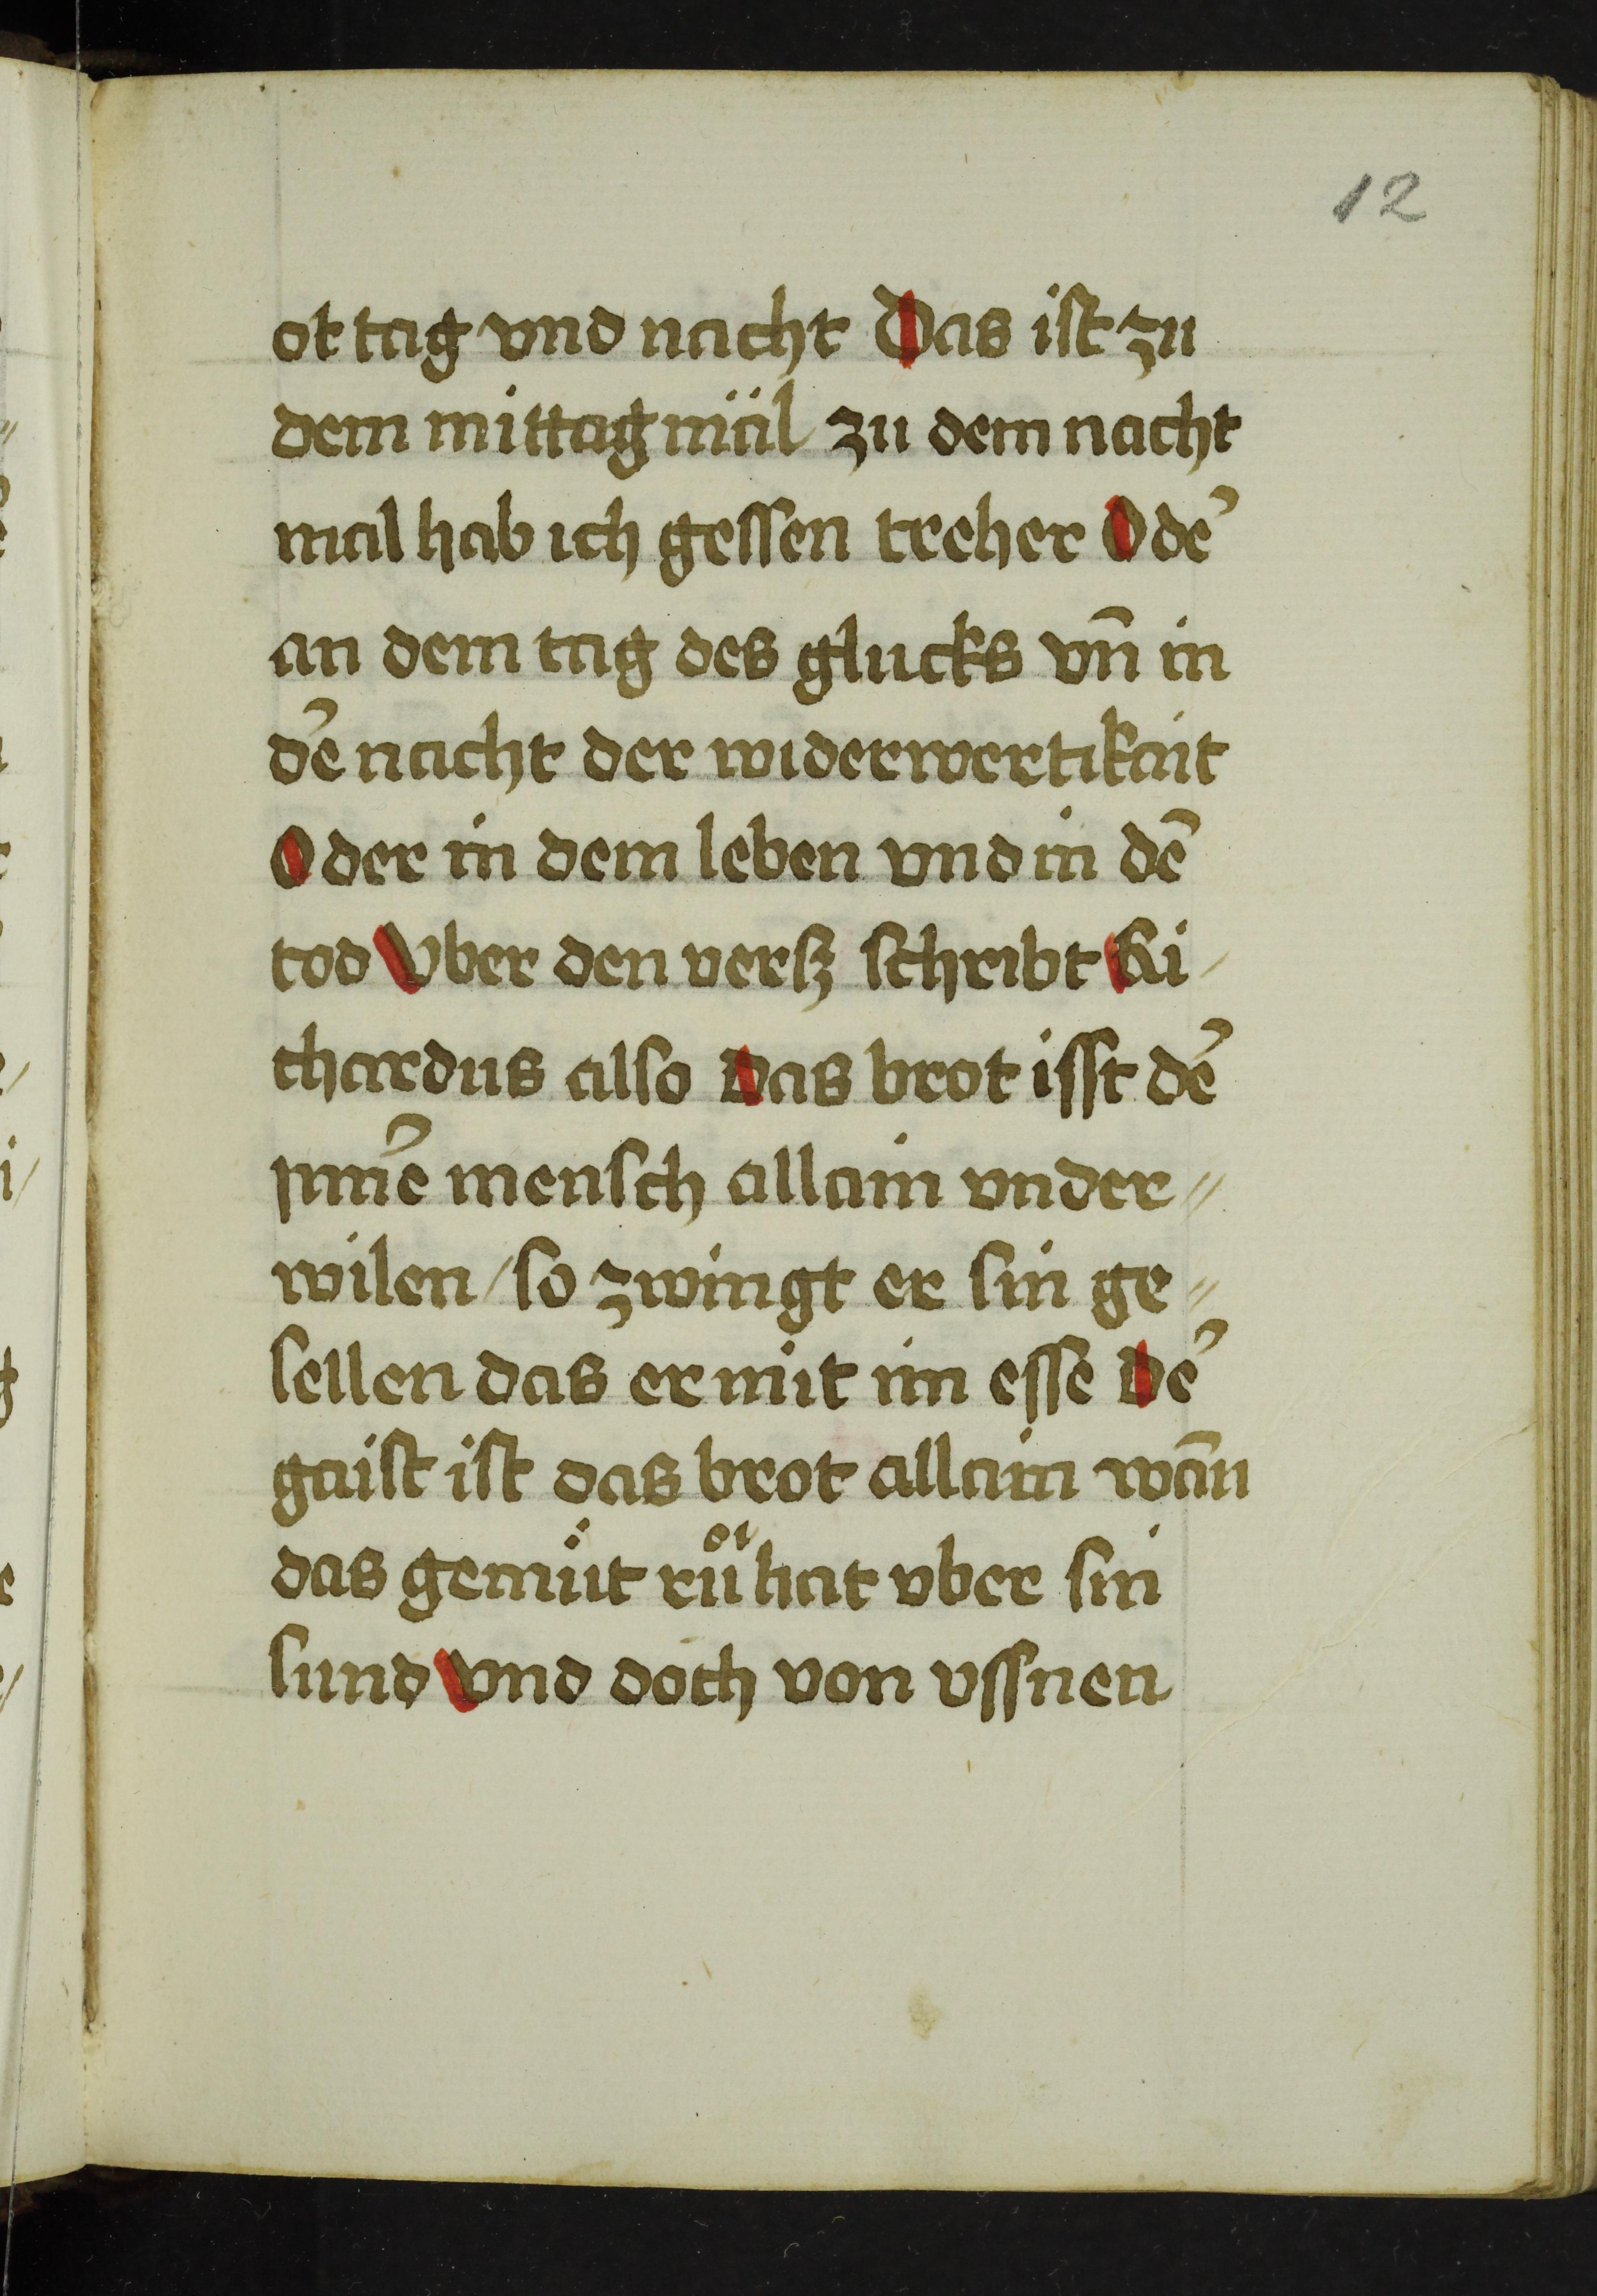 12
ot tag vnd nacht Das ist zu
dem mittag mäl zu dem nacht
mal hab ich gessen treher Ode᷑
an dem tag des glucks vn̄ in
de᷑ nacht der widerwertikait
Oder in dem leben vnd in dē
tod Vber den versz schribt Ri
chardus also Das brot isst de᷑
inne᷑ mensch allain vnder〃
wilen / so zwingt er sin ge〃
sellen das er mit im esse De᷑
gaist ist das brot allain wān
das gemüt rüͦ hat vber sin
sund vnd doch von vssnen